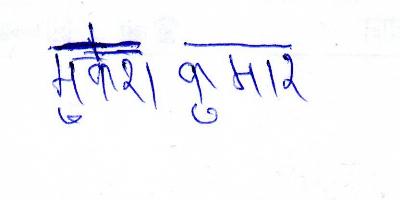 मुकेश कुमार